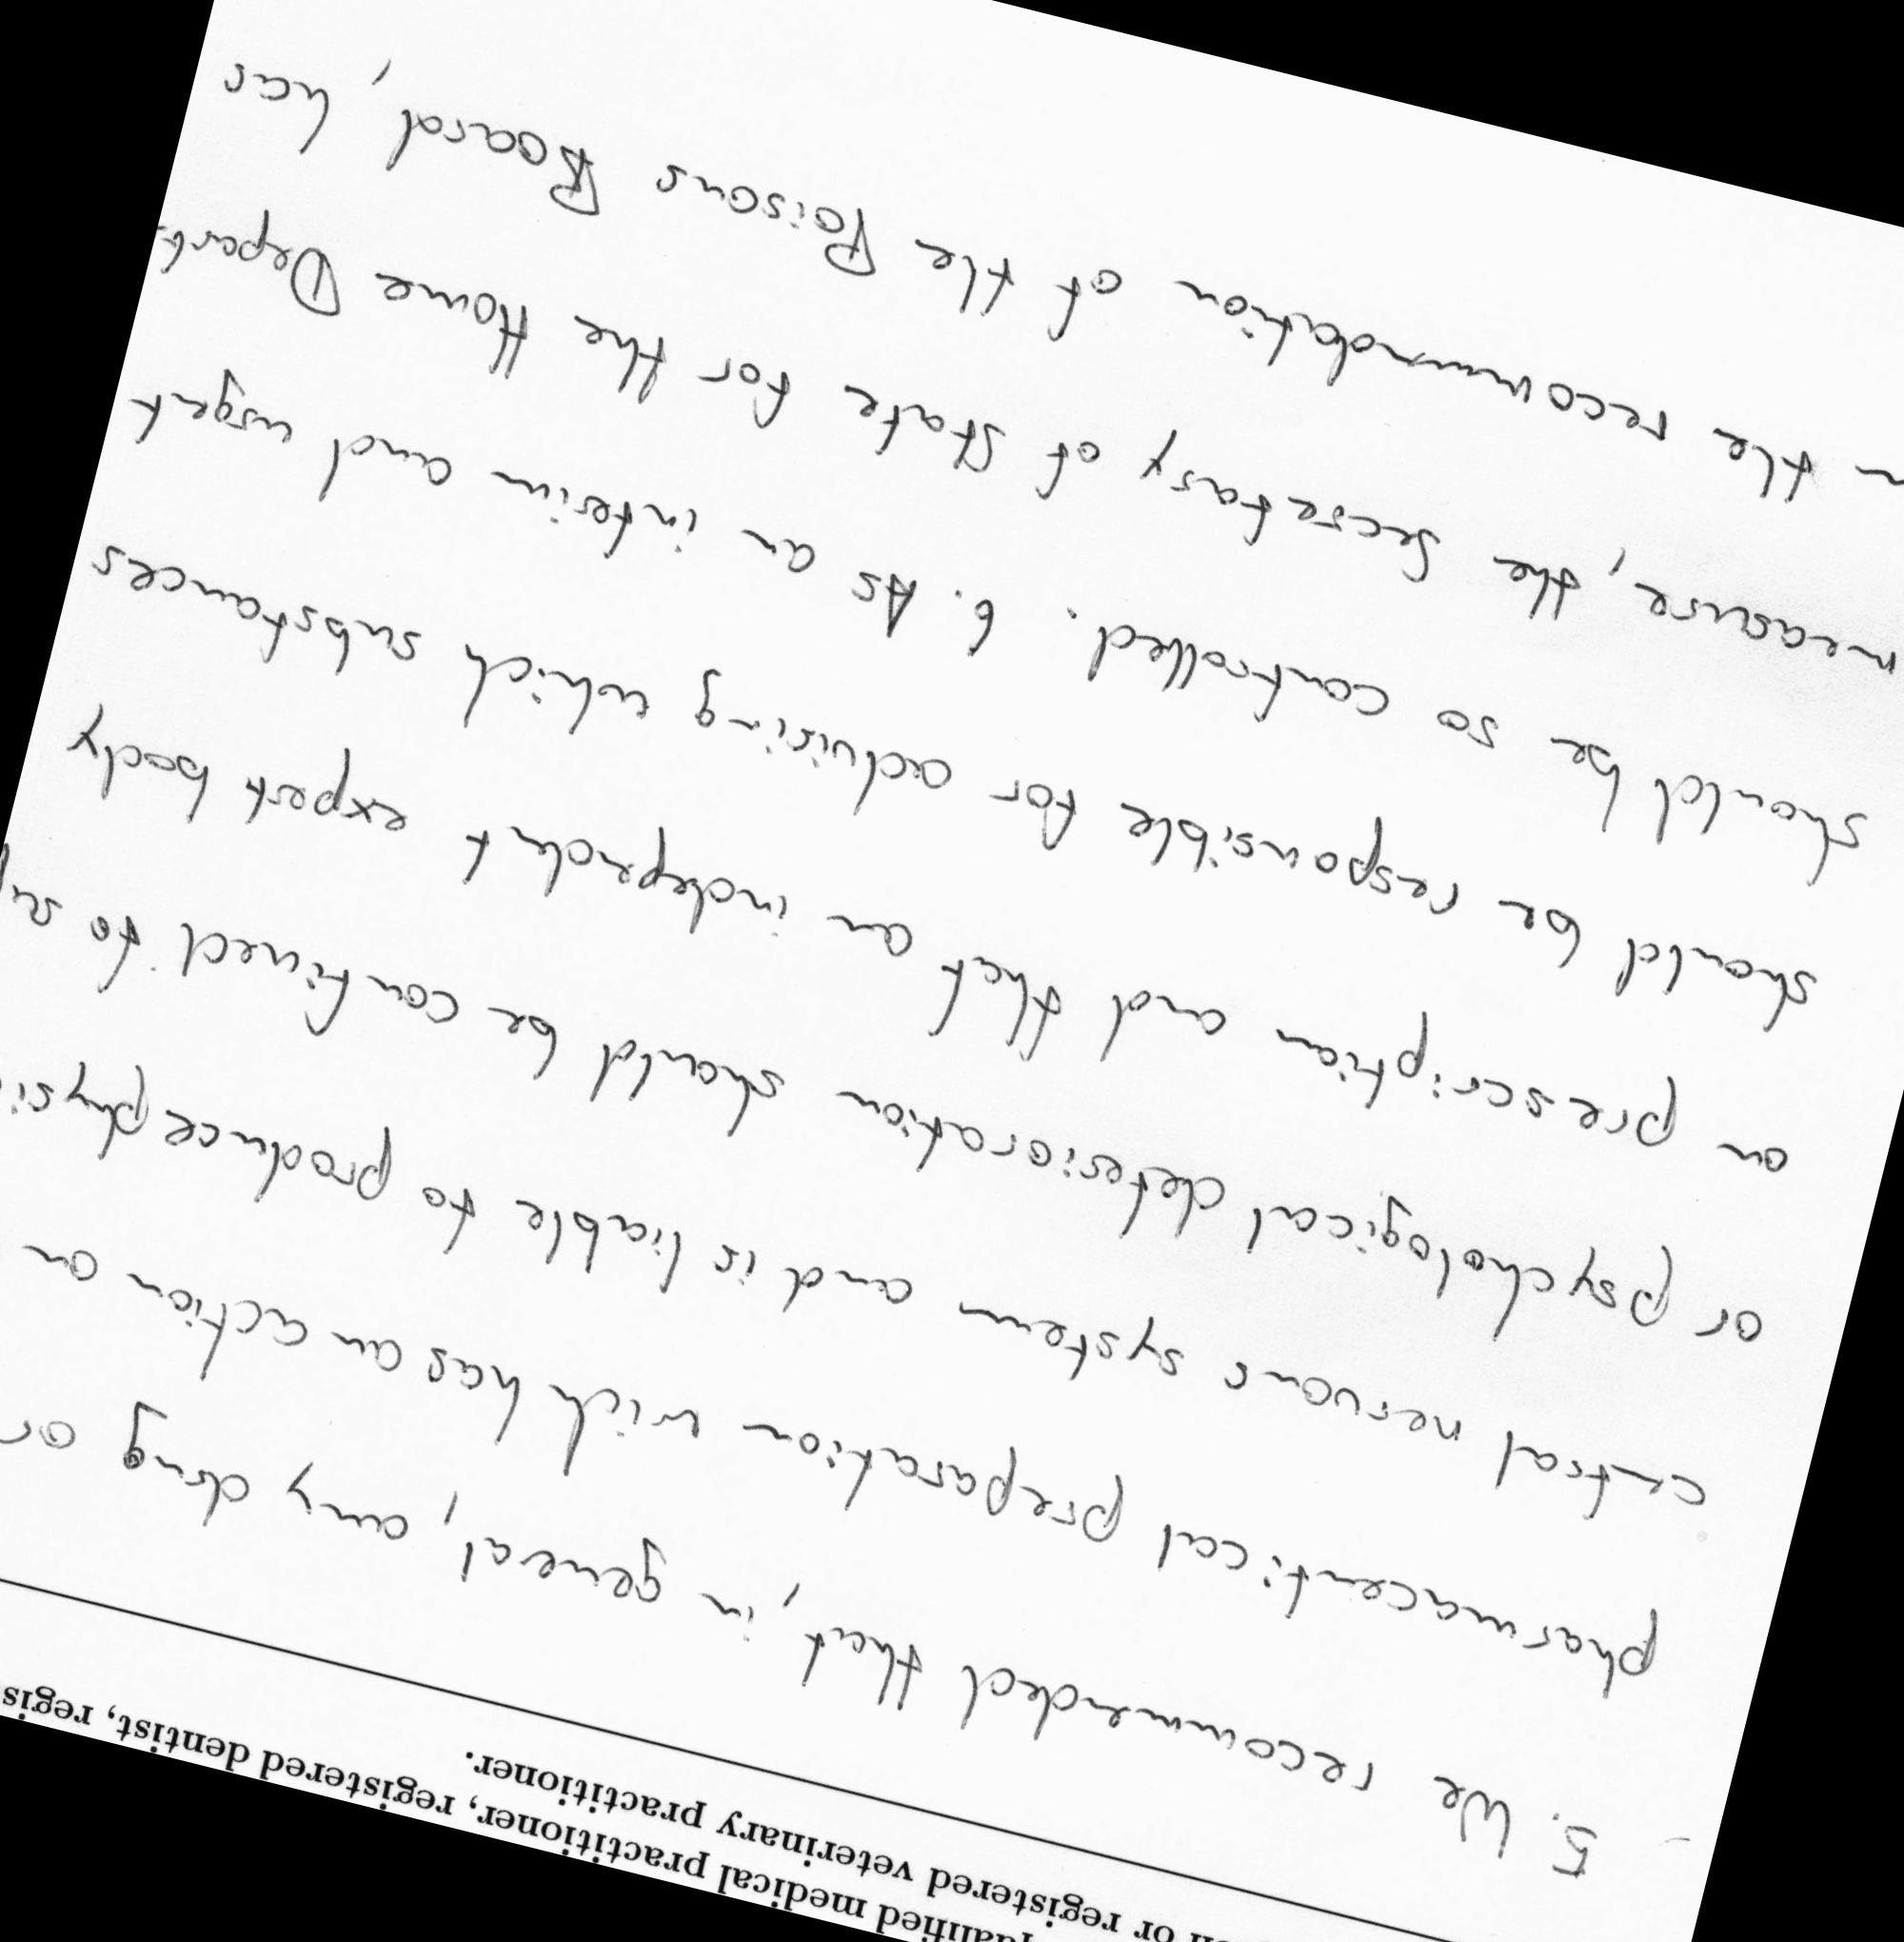 qualified medical practitioner, registered dentist, regis
or registered veterinary practitioner.
5. We recommended that, in general, any drug or
pharmaceutical preparation which has an action on
central nervous system and is liable to produce physi
or psychological deterioration should be confined to su
on prescription and that an independent expert body
should be responsible for advising which substances
should be so controlled. 6. As an interim and urgent
measure, the Secretary of State for the Home Depart-
the recommendation of the Poisons Board, has